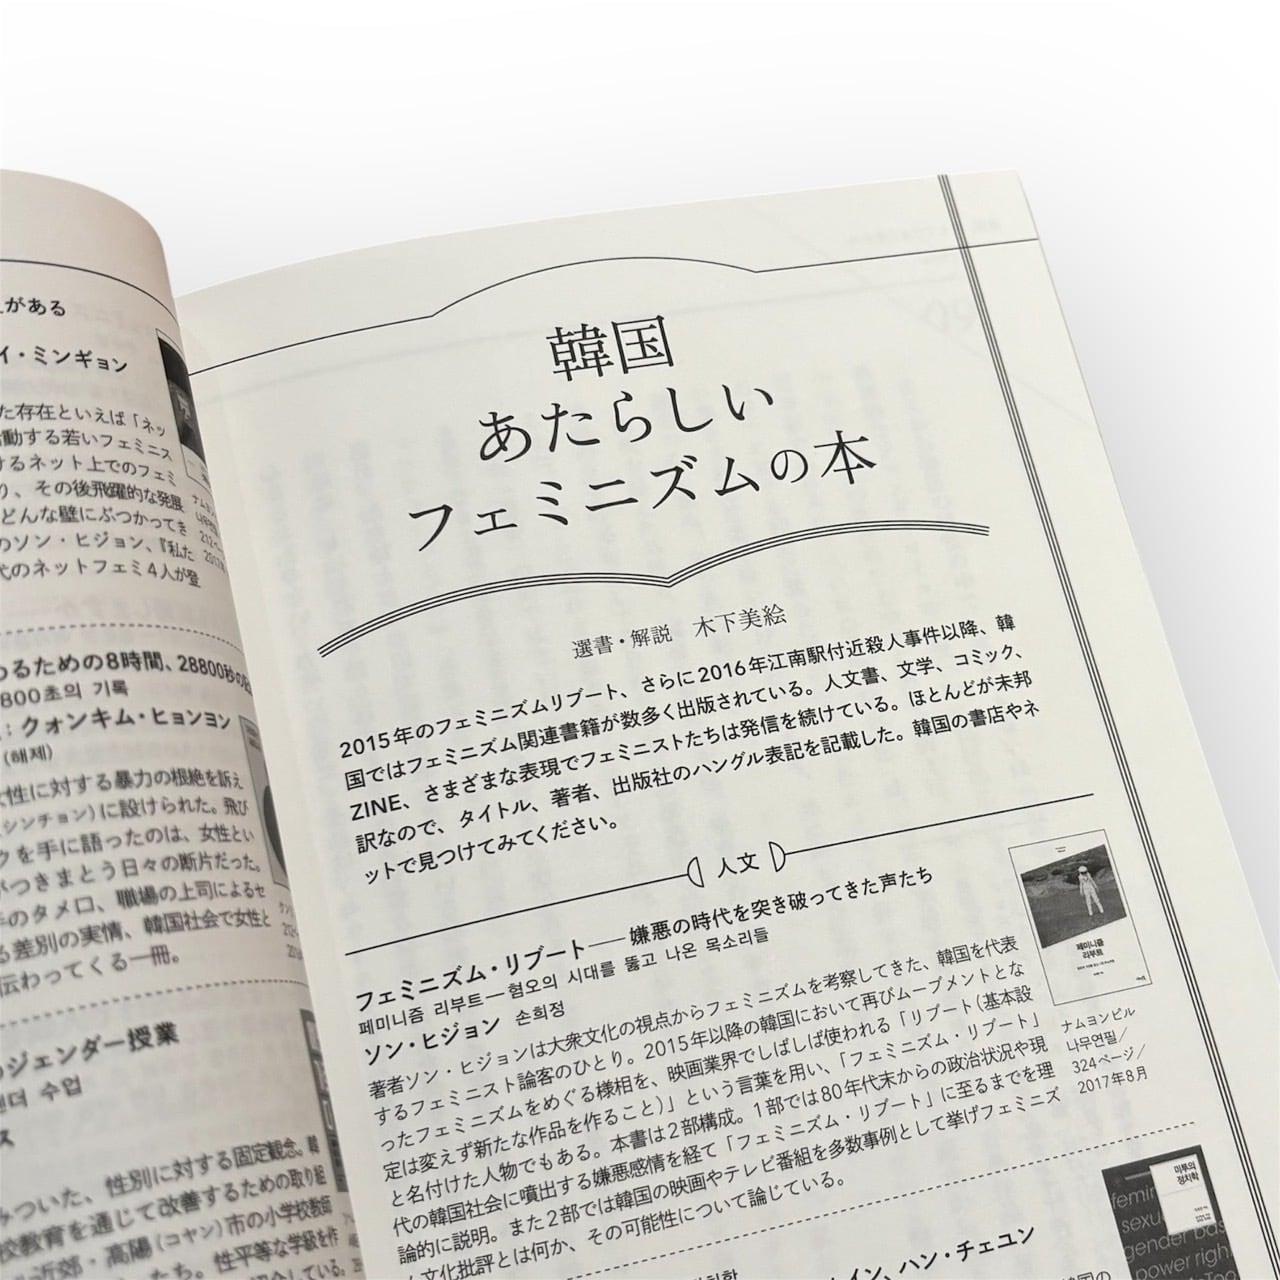 がある
イ・ミンギョン
た存在といえば「ネッ
動する若いフェミニス
けるネット上でのフェミ
り、その後飛躍的な発展
どんな壁にぶつかってき
のソン・ヒジョン、『私た
代のネットフェミ4人が登
わるための8時間、28800秒の
800초의 기록
：クォンキム・ヒョンヨン
(해제)
女性に対する暴力の根絶を訴え
シンチョン)に設けられた。飛び
クを手に語ったのは、女性とい
がつきまとう日々の断片だった。
手のタメ口、職場の上司によるセ
る差別の実情、韓国社会で女性と
伝わってくる一冊。
ジェンダー授業
젠더 수업
ス
みついた、性別に対する固定観念。韓
校教育を通じて改善するための取り組
近郊・高陽(コヤン)市の小学校教師
たち。性平等な学級を作
韓国
あたらしい
フェミニズムの本
選書・解説　木下美絵
2015年のフェミニズムリブート、さらに2016年江南駅付近殺人事件以降、韓
国ではフェミニズム関連書籍が数多く出版されている。人文書、文学、コミック、
ZINE、さまざまな表現でフェミニストたちは発信を続けている。ほとんどが未邦
訳なので、タイトル、著者、出版社のハングル表記を記載した。韓国の書店やネ
ットで見つけてみてください。
人文
フェミニズム・リブート――嫌悪の時代を突き破ってきた声たち
페미니즘 리부트―혐오의 시대를 뚫고 나온 목소리들
ソン・ヒジョン 손희정
著者ソン・ヒジョンは大衆文化の視点からフェミニズムを考察してきた、韓国を代表
するフェミニスト論客のひとり。2015年以降の韓国において再びムーブメントとな
ったフェミニズムをめぐる様相を、映画業界でしばしば使われる「リブート(基本設
定は変えず新たな作品を作ること)」という言葉を用い、「フェミニズム・リブート」
と名付けた人物でもある。本書は2部構成。1部では80年代末からの政治状況や現
代の韓国社会に噴出する嫌悪感情を経て「フェミニズム・リブート」に至るまでを理
論的に説明。また2部では韓国の映画やテレビ番組を多数事例として挙げフェミニズ
ム文化批評とは何か、その可能性について論じている。
페미니즘
리부트
ナムヨンピル
나무연필／
324ページ／
2017年8月
イン、ハン・チェユン
미투의
정치학
gender bas
power righ